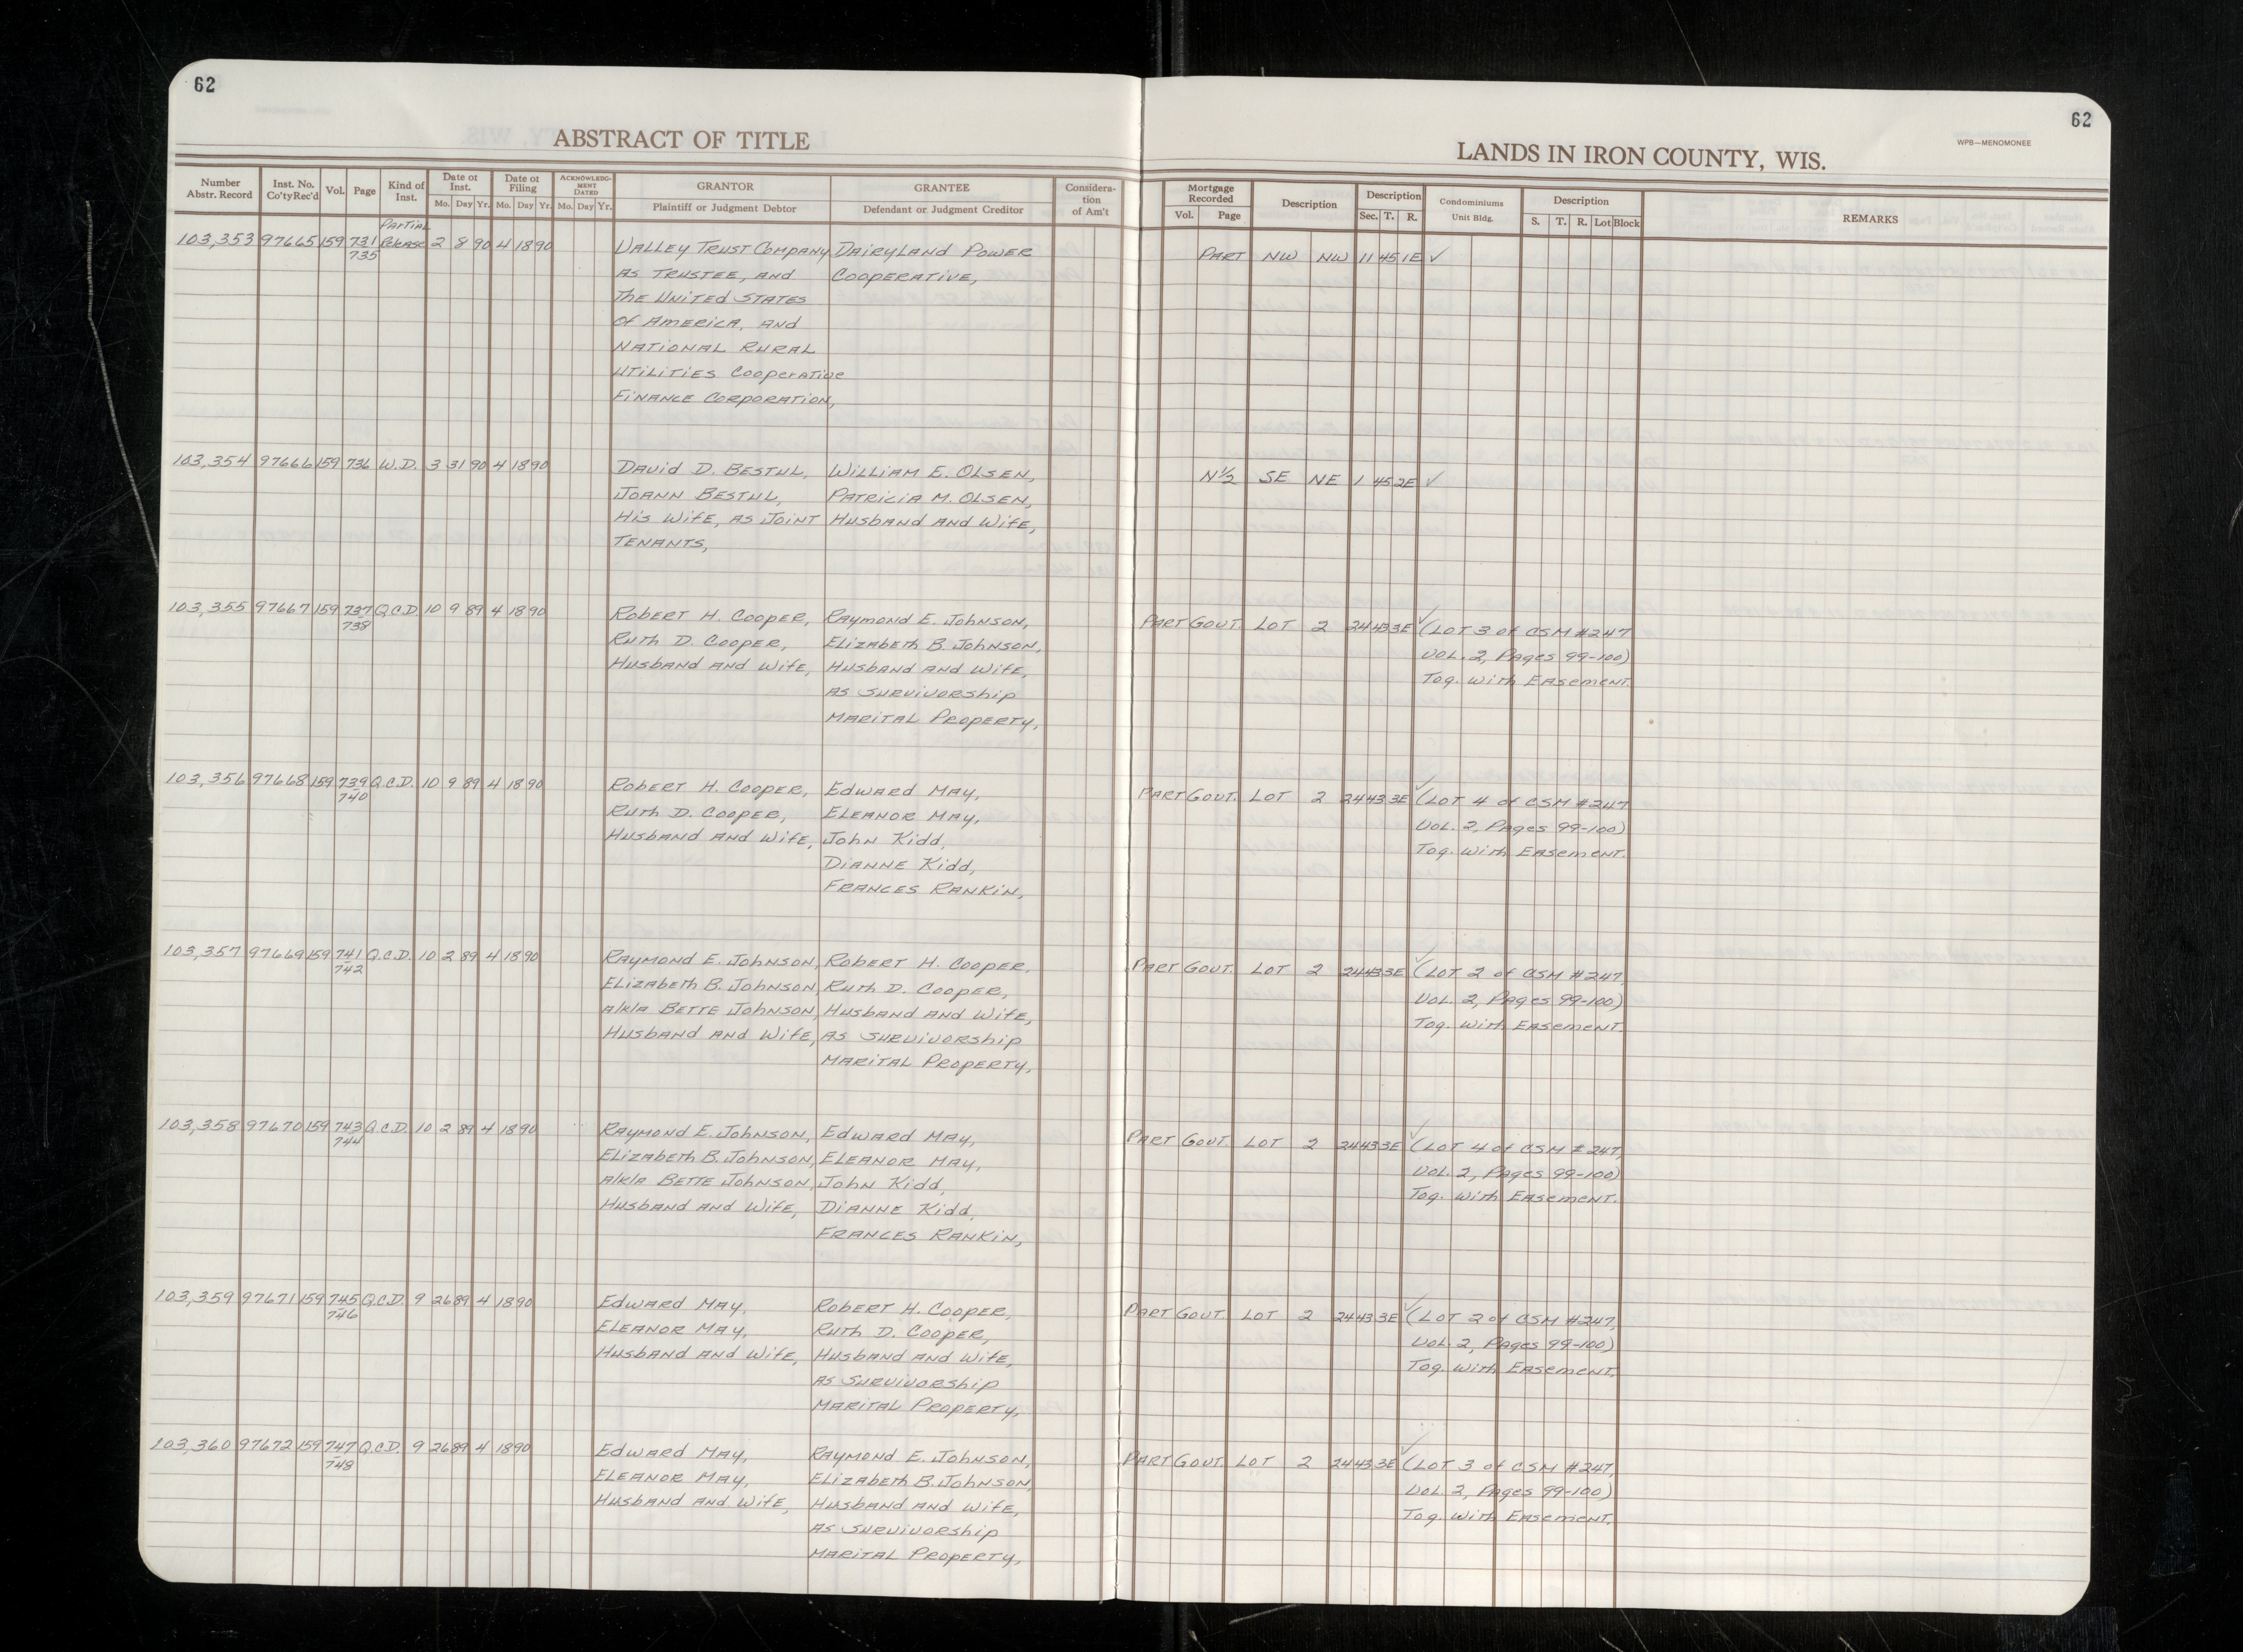 62
62
ABSTRACT OF TITLE
LANDS IN IRON COUNTY, WIS.
WPB—MENOMONEE
Number Abstr. Record
Inst. No. Co'ty Rec'd
Vol.
Page
Kind of Inst.
Date of Inst.
Mo. Day Yr.
Date of Filing
Mo. Day Yr.
ACKNOWLEDGMENT DATED
Mo. Day Yr.
GRANTOR
Plaintiff or Judgment Debtor
GRANTEE
Defendant or Judgment Creditor
Consideration of Am't
Mortgage Recorded
Vol. Page
Description
Description
Sec. T. R.
Condominiums
Unit Bldg.
Description
S. T. R. Lot Block
REMARKS
Partial
103,353 97665 159 731 Release 2 8 90 4 18 90 Valley Trust Company Dairyland Power PART NW NW 11 45 1E ✓
735
as Trustee, and Cooperative,
The United States
of America, and
National Rural
Utilities Cooperative
Finance Corporation,
103,354 97666 159 736 W.D. 3 31 90 4 18 90 David D. Bestul, William E. Olsen, N½ SE NE 1 45 2E ✓
JoAnn Bestul, Patricia M. Olsen,
His Wife, as Joint Husband and Wife,
Tenants,
103,355 97667 159 737 Q.C.D. 10 9 89 4 18 90 Robert H. Cooper, Raymond E. Johnson, Part Govt. Lot 2 24 43 3E ✓ (Lot 3 of CSM #247
738
Ruth D. Cooper, Elizabeth B. Johnson, Vol. 2, Pages 99-100)
Husband and Wife, Husband and Wife, Tog. With Easement.
as Survivorship
Marital Property,
103,356 97668 159 739 Q.C.D. 10 9 89 4 18 90 Robert H. Cooper, Edward May, Part Govt. Lot 2 24 43 3E ✓ (Lot 4 of CSM #247
740
Ruth D. Cooper, Eleanor May, Vol. 2, Pages 99-100)
Husband and Wife, John Kidd, Tog. With Easement.
Dianne Kidd,
Frances Rankin,
103,357 97669 159 741 Q.C.D. 10 2 89 4 18 90 Raymond E. Johnson, Robert H. Cooper, Part Govt. Lot 2 24 43 3E ✓ (Lot 2 of CSM #247,
742
Elizabeth B. Johnson, Ruth D. Cooper, Vol. 2, Pages 99-100)
a/k/a Bette Johnson, Husband and Wife, Tog. With Easement.
Husband and Wife, as Survivorship
Marital Property,
103,358 97670 159 743 Q.C.D. 10 2 89 4 18 90 Raymond E. Johnson, Edward May, Part Govt. Lot 2 24 43 3E ✓ (Lot 4 of CSM #247,
744
Elizabeth B. Johnson, Eleanor May, Vol. 2, Pages 99-100)
a/k/a Bette Johnson, John Kidd, Tog. With Easement.
Husband and Wife, Dianne Kidd,
Frances Rankin,
103,359 97671 159 745 Q.C.D. 9 26 89 4 18 90 Edward May, Robert H. Cooper, Part Govt. Lot 2 24 43 3E ✓ (Lot 2 of CSM #247,
746
Eleanor May, Ruth D. Cooper, Vol. 2, Pages 99-100)
Husband and Wife, Husband and Wife, Tog. With Easement.
as Survivorship
Marital Property,
103,360 97672 159 747 Q.C.D. 9 26 89 4 18 90 Edward May, Raymond E. Johnson, Part Govt. Lot 2 24 43 3E ✓ (Lot 3 of CSM #247,
748
Eleanor May, Elizabeth B. Johnson, Vol. 2, Pages 99-100)
Husband and Wife, Husband and Wife, Tog. With Easement.
as Survivorship
Marital Property,